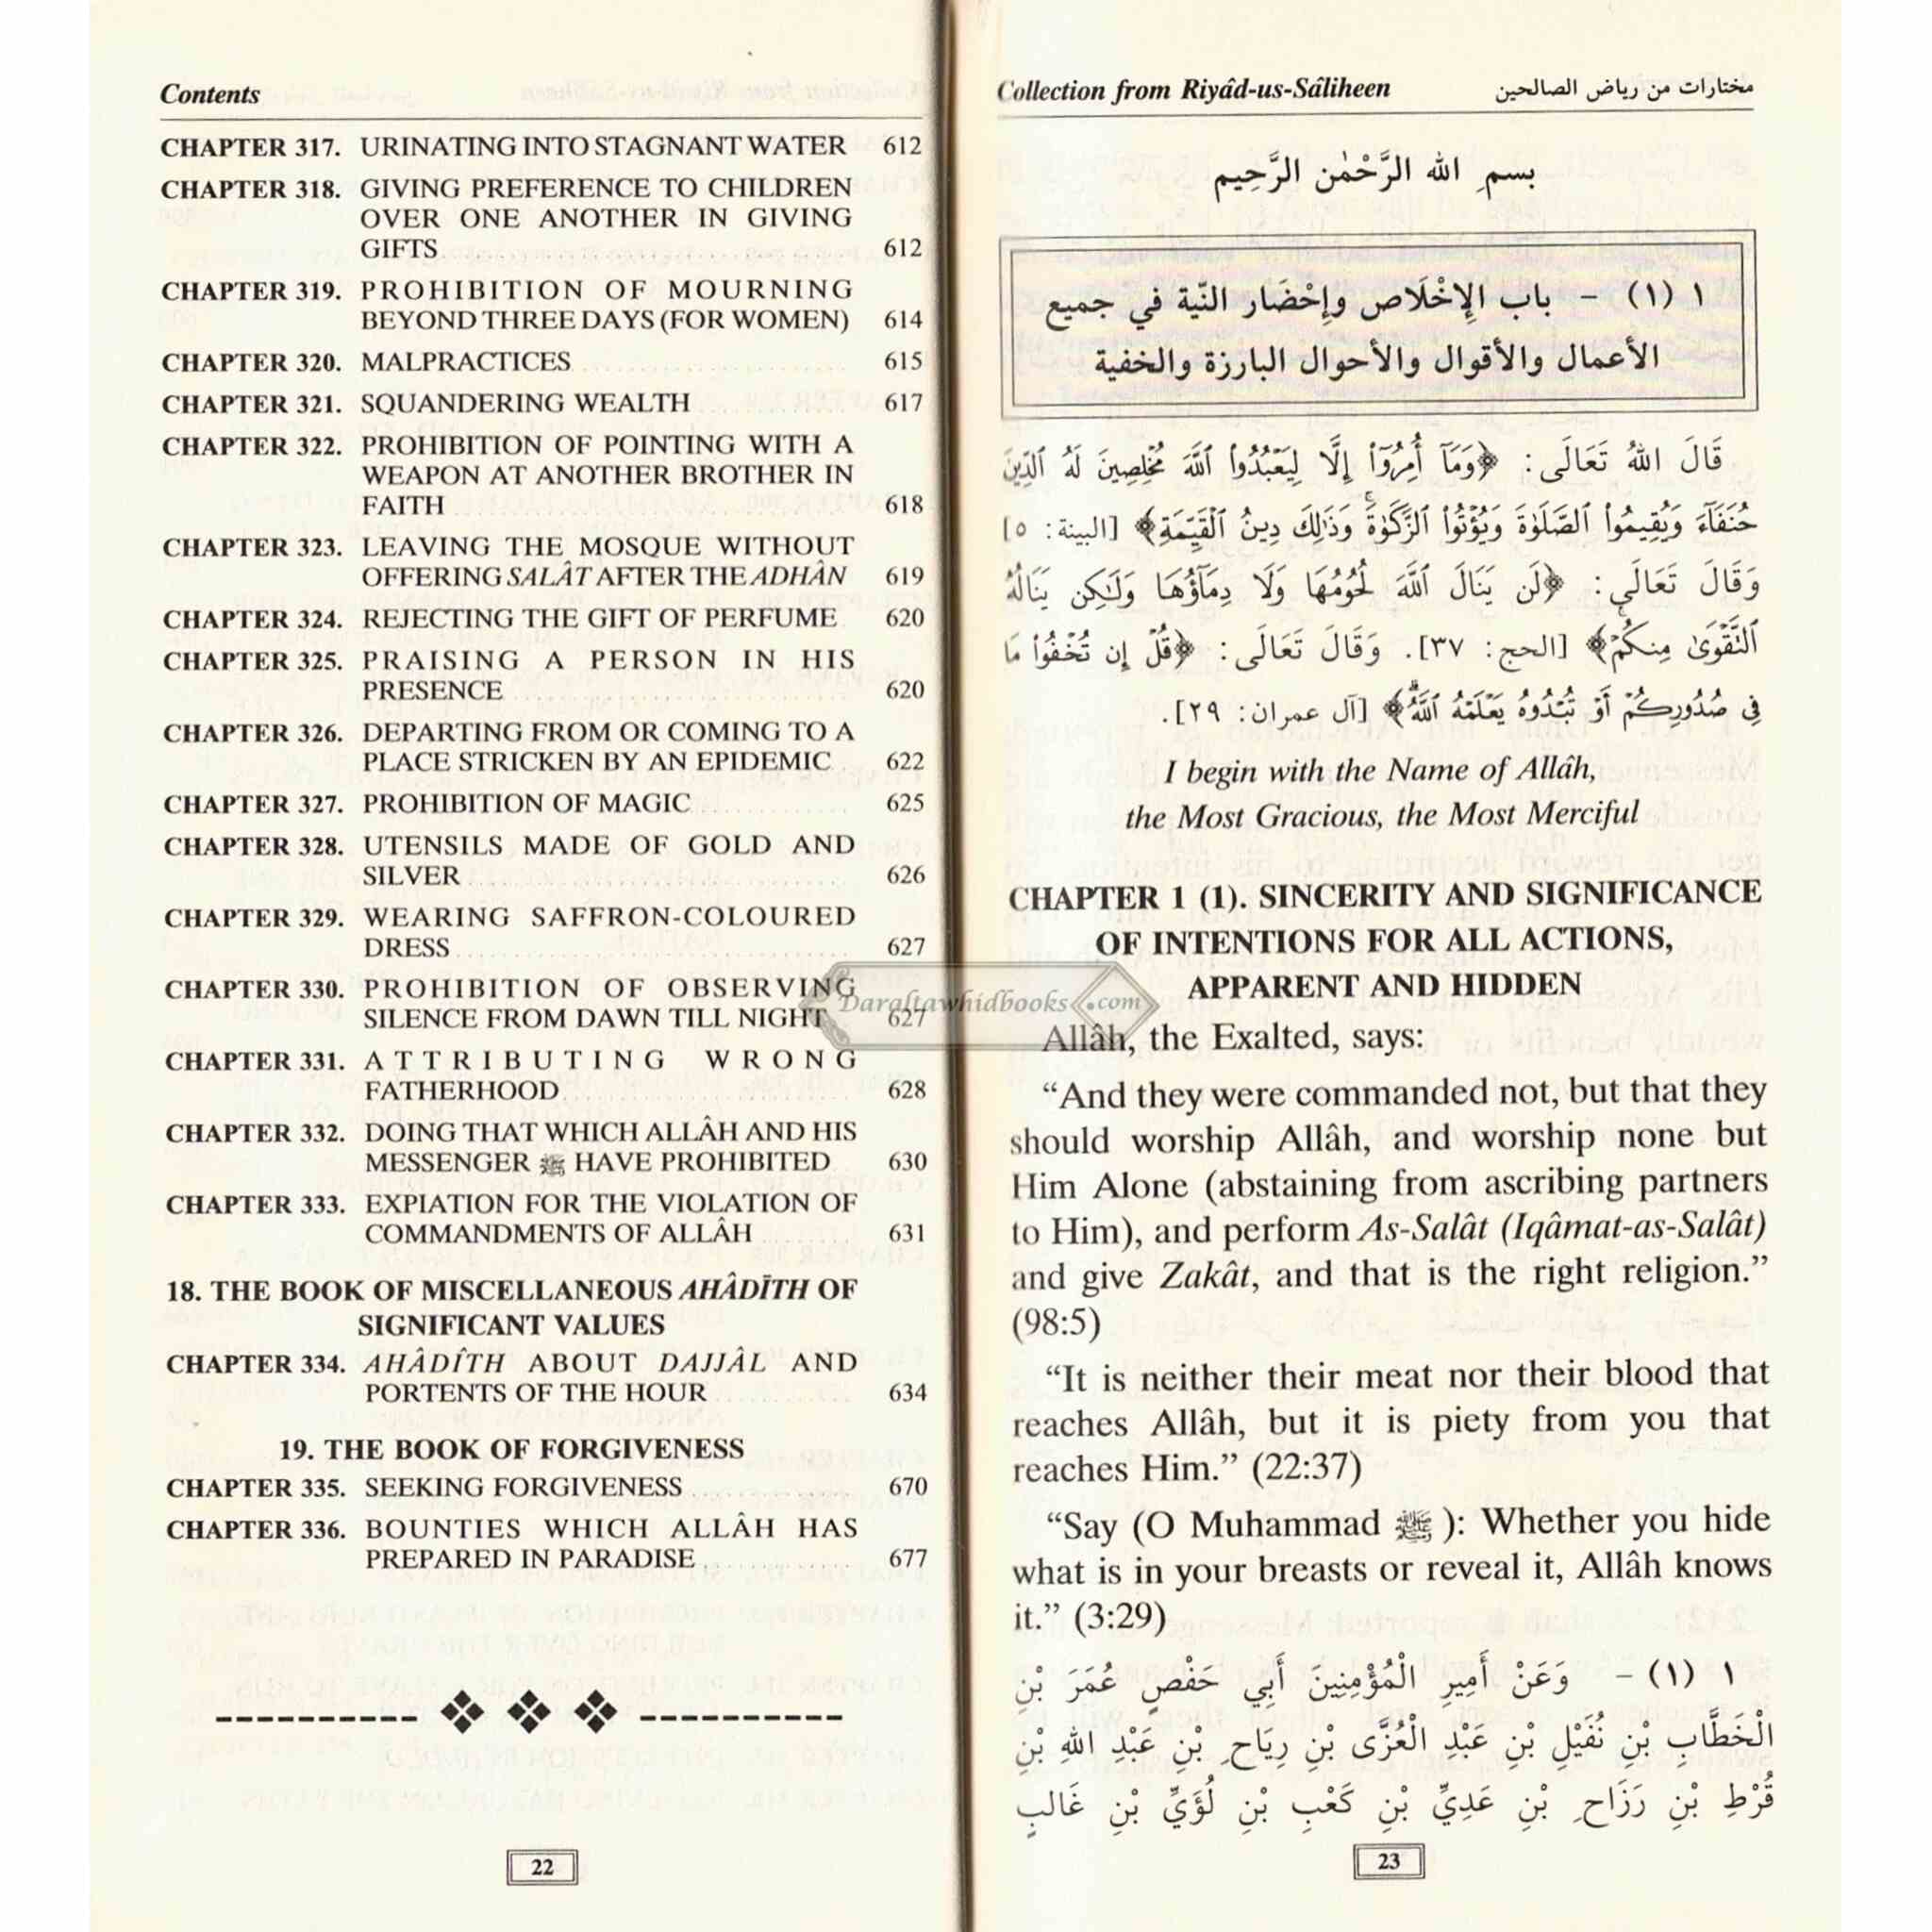 Contents
CHAPTER 317. URINATING INTO STAGNANT WATER 612
CHAPTER 318. GIVING PREFERENCE TO CHILDREN
OVER ONE ANOTHER IN GIVING
GIFTS 612
CHAPTER 319. PROHIBITION OF MOURNING
BEYOND THREE DAYS (FOR WOMEN) 614
CHAPTER 320. MALPRACTICES 615
CHAPTER 321. SQUANDERING WEALTH 617
CHAPTER 322. PROHIBITION OF POINTING WITH A
WEAPON AT ANOTHER BROTHER IN
FAITH 618
CHAPTER 323. LEAVING THE MOSQUE WITHOUT
OFFERING SALÂT AFTER THE ADHÂN 619
CHAPTER 324. REJECTING THE GIFT OF PERFUME 620
CHAPTER 325. PRAISING A PERSON IN HIS
PRESENCE 620
CHAPTER 326. DEPARTING FROM OR COMING TO A
PLACE STRICKEN BY AN EPIDEMIC 622
CHAPTER 327. PROHIBITION OF MAGIC 625
CHAPTER 328. UTENSILS MADE OF GOLD AND
SILVER 626
CHAPTER 329. WEARING SAFFRON-COLOURED
DRESS 627
CHAPTER 330. PROHIBITION OF OBSERVING
SILENCE FROM DAWN TILL NIGHT 627
CHAPTER 331. ATTRIBUTING WRONG
FATHERHOOD 628
CHAPTER 332. DOING THAT WHICH ALLÂH AND HIS
MESSENGER ﷺ HAVE PROHIBITED 630
CHAPTER 333. EXPIATION FOR THE VIOLATION OF
COMMANDMENTS OF ALLÂH 631
18. THE BOOK OF MISCELLANEOUS AHÂDĪTH OF
SIGNIFICANT VALUES
CHAPTER 334. AHÂDÎTH ABOUT DAJJÂL AND
PORTENTS OF THE HOUR 634
19. THE BOOK OF FORGIVENESS
CHAPTER 335. SEEKING FORGIVENESS 670
CHAPTER 336. BOUNTIES WHICH ALLÂH HAS
PREPARED IN PARADISE 677
22
Daraltawhidbooks.com
Collection from Riyâd-us-Sâliheen مختارات من رياض الصالحين
بسمِ الله الرَّحْمٰن الرَّحِيم
١ (١) – باب الإِخْلَاص وإِحْضَار النّية في جميع
الأعمال والأقوال والأحوال البارزة والخفية
قَالَ اللهُ تَعَالَى: ﴿وَمَآ أُمِرُوٓاْ إِلَّا لِيَعۡبُدُواْ ٱللَّهَ مُخۡلِصِينَ لَهُ ٱلدِّينَ
حُنَفَآءَ وَيُقِيمُواْ ٱلصَّلَوٰةَ وَيُؤۡتُواْ ٱلزَّكَوٰةَۚ وَذَٰلِكَ دِينُ ٱلۡقَيِّمَةِ﴾ [البينة: ٥]
وَقَالَ تَعَالَى: ﴿لَن يَنَالَ ٱللَّهَ لُحُومُهَا وَلَا دِمَآؤُهَا وَلَٰكِن يَنَالُهُ
ٱلتَّقۡوَىٰ مِنكُمۡ﴾ [الحج: ٣٧]. وَقَالَ تَعَالَى: ﴿قُلۡ إِن تُخۡفُواْ مَا
فِي صُدُورِكُمۡ أَوۡ تُبۡدُوهُ يَعۡلَمۡهُ ٱللَّهُۗ﴾ [آل عمران: ٢٩].
I begin with the Name of Allâh,
the Most Gracious, the Most Merciful
CHAPTER 1 (1). SINCERITY AND SIGNIFICANCE
OF INTENTIONS FOR ALL ACTIONS,
APPARENT AND HIDDEN
Allâh, the Exalted, says:
“And they were commanded not, but that they
should worship Allâh, and worship none but
Him Alone (abstaining from ascribing partners
to Him), and perform As-Salât (Iqâmat-as-Salât)
and give Zakât, and that is the right religion.”
(98:5)
“It is neither their meat nor their blood that
reaches Allâh, but it is piety from you that
reaches Him.” (22:37)
“Say (O Muhammad ﷺ): Whether you hide
what is in your breasts or reveal it, Allâh knows
it.” (3:29)
١ (١) – وَعَنْ أَمِيرِ الْمُؤْمِنِينَ أَبِي حَفْصٍ عُمَرَ بْنِ
الْخَطَّابِ بْنِ نُفَيْلِ بْنِ عَبْدِ الْعُزَّى بْنِ رِيَاحِ بْنِ عَبْدِ اللهِ بْنِ
قُرْطِ بْنِ رَزَاحِ بْنِ عَدِيِّ بْنِ كَعْبِ بْنِ لُؤَيِّ بْنِ غَالبٍ
23